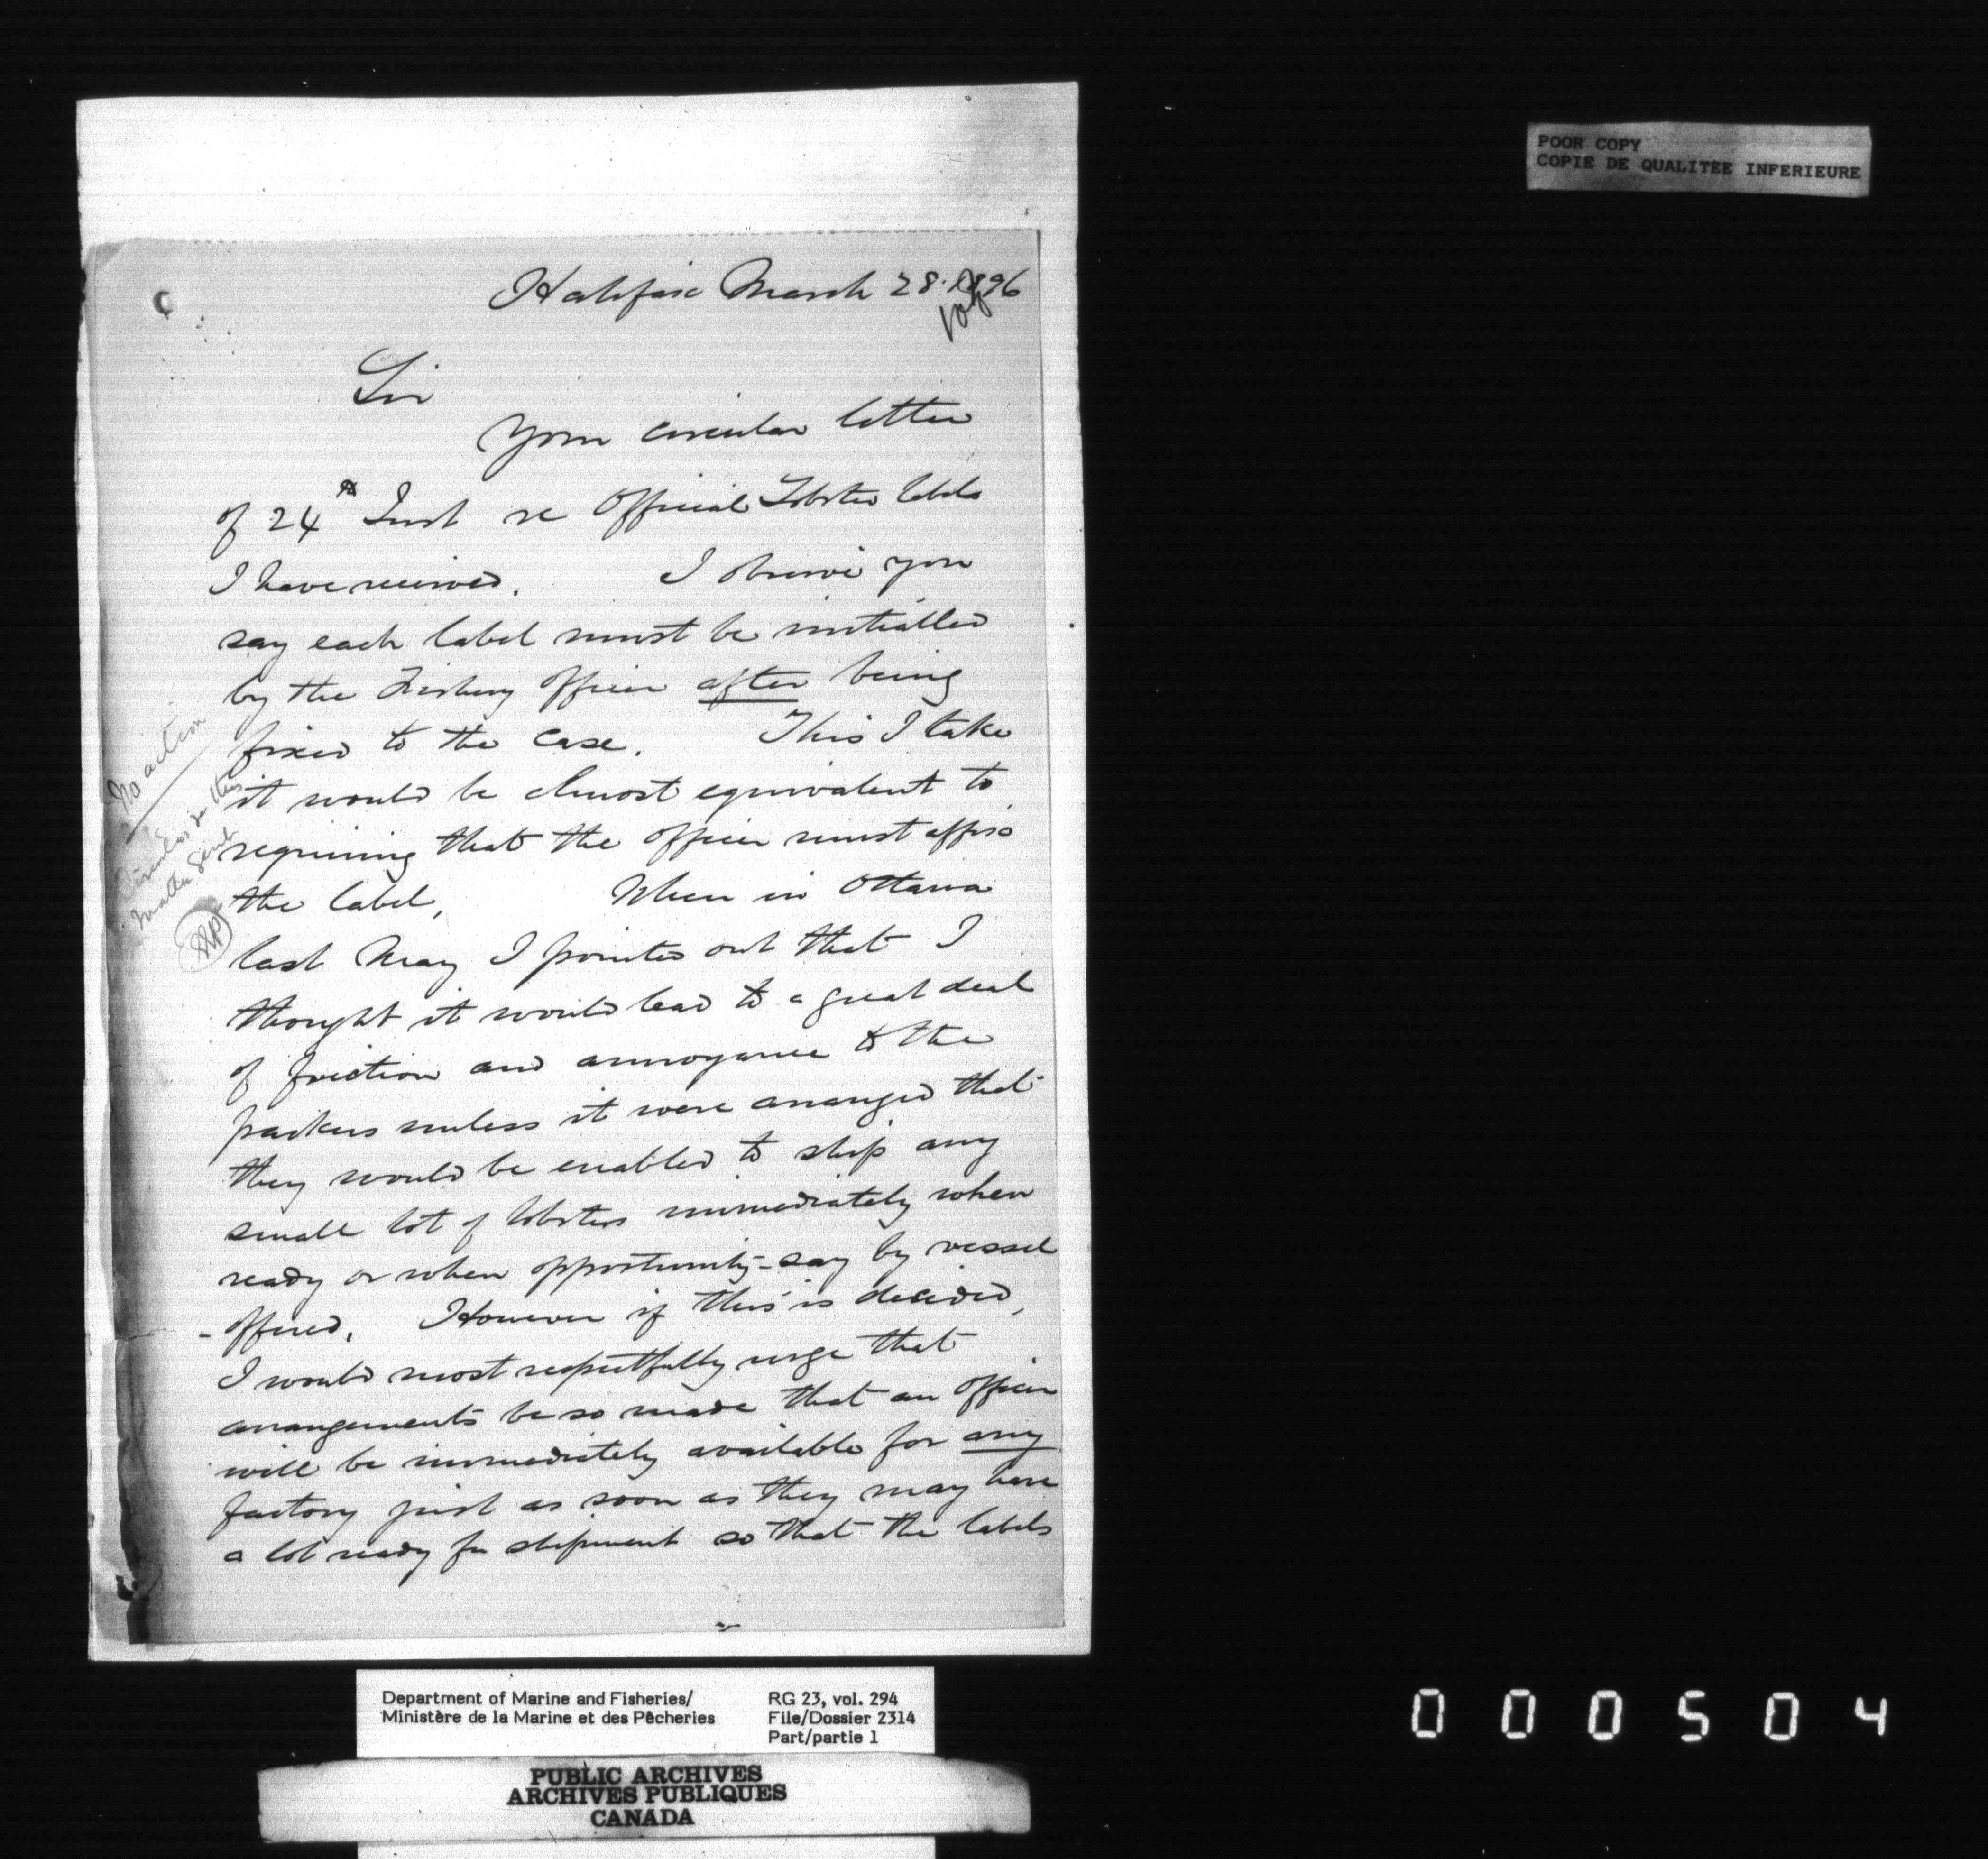 POOR COPY
COPIE DE QUALITEE INFERIEURE
Halifax March 28. 1896
Sir
Your circular letter
of 24th Inst re Official Lobster labels
I have received. I observe you
say each label must be initialled
by the Fishery Officer after being
fixed to the case. This I take
it would be almost equivalent to
requiring that the officer must affix
the label, When in Ottawa
last May I pointed out that I
thought it would lead to a great deal
of friction and annoyance to the
packers unless it were arranged that
they would be enabled to ship any
small lot of lobsters immediately when
ready or when opportunity - say by vessel
- offered. However if this is decided,
I would most respectfully urge that
arrangements be so made that an officer
will be immediately available for any
factory just as soon as they may have
a lot ready for shipment so that the labels
No action
Circular re this
matter sent
Department of Marine and Fisheries/
Ministère de la Marine et des Pêcheries
RG 23, vol. 294
File/Dossier 2314
Part/partie 1
PUBLIC ARCHIVES
ARCHIVES PUBLIQUES
CANADA
000504